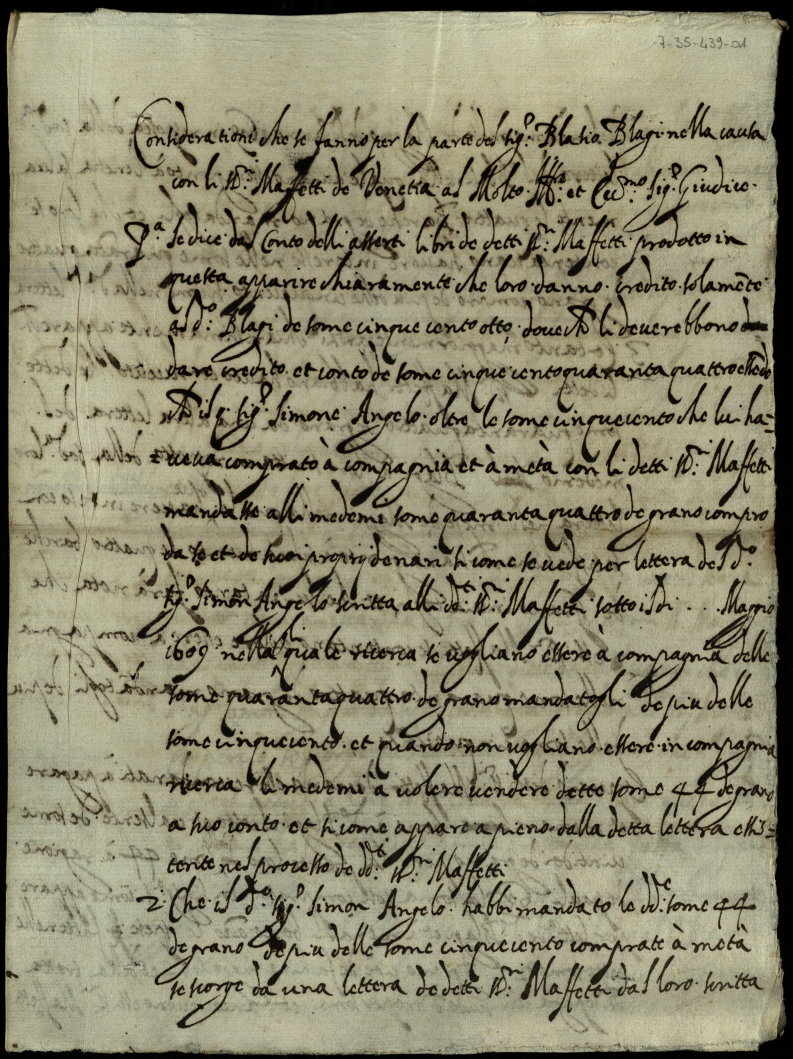 7-35-439-01
Considerationi che se fanno per la parte del sig.r Blasio Blagi nella causa
con li SS.ri Maffetti de Venetia al Molto Ill.re et Ecc.mo Sig.r Giudice.
P.a Se dice dal Conto delli asserti libri de detti SS.ri Maffetti prodotto in
questa apparire chiaramente che loro danno credito solamẽte
al d.o Blagi de some cinque cento otto dove li deverebbono
dare credito et conto de some cinque cento quaranta quattro
il q. sig.r Simone Angelo oltre le some cinquecento che lui ha=
=veva comprato à compagnia et à metà con li detti SS.ri Maffetti
mandasse alli medemi some quaranta quattro de grano compro
da se et de suoi proprij denari si come se vede per lettera del d.o
sig.r Simon Angelo scritta alli dd.i SS.ri Maffetti sotto il dì . . . Maggio
1609 nella quale ricerca se vogliano essere à compagnia delle
some quaranta quattro de grano mandatogli de più delle
some cinquecento et quando non vogliano essere in compagnia
ricerca li medemi à volere vendere dette some 44 de grano
a suo conto et si come appare a pieno dalla detta lettera essis=
tente nel processo de dd.i SS.ri Maffetti
2. Che il d.o sig.r Simon Angelo habbi mandato le dd.e some 44
de grano de più delle some cinquecento comprate à metà
se scorge da una lettera de detti SS.ri Maffetti dal loro scritta